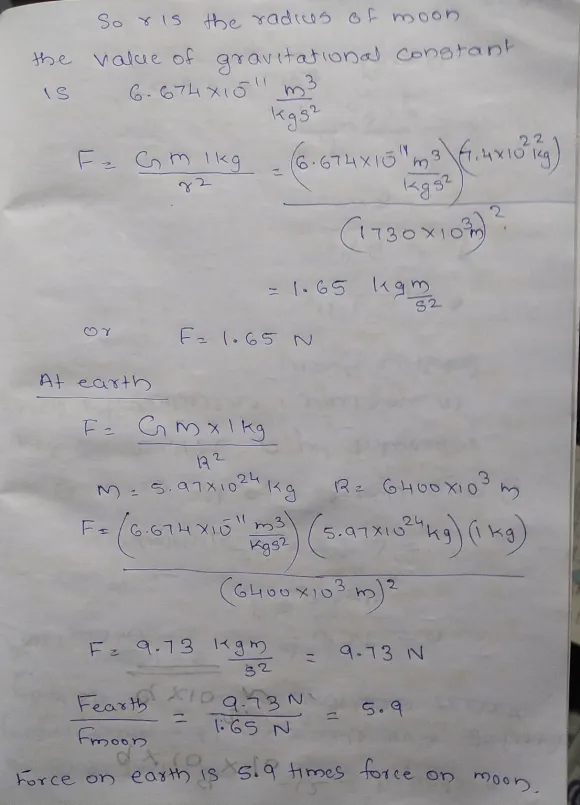 So r is the radius of moon
the value of gravitational constant
is 6.674×10⁻¹¹ m³/kgs²
F = Gm 1kg / r² = (6.674×10⁻¹¹ m³/kgs²)(7.4×10²² kg) / (1730×10³m)²
= 1.65 kgm/s²
or F = 1.65 N
At earth
F = Gm×1kg / R²
M = 5.97×10²⁴ kg R = 6400×10³ m
F = (6.674×10⁻¹¹ m³/kgs²)(5.97×10²⁴kg)(1kg) / (6400×10³ m)²
F = 9.73 kgm/s² = 9.73 N
Fearth/Fmoon = 9.73 N/1.65 N = 5.9
Force on earth is 5.9 times force on moon.